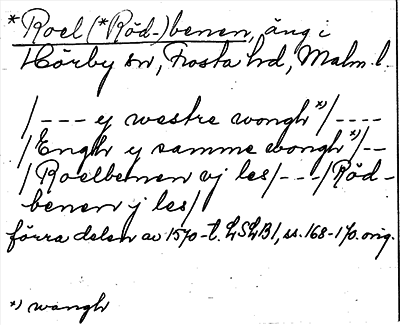 *Roel (*Röd-)benen, äng i
Hörby sn, Frosta hd, Malm. l.
/--- ej westre wongh*)/----
/Engh ej samme wongh*)/--
/Roelbenen vj les/---/Röd-
benen j les/
förra delen av 1570-t. LSLB1, ss. 168-170. orig.
*) wangh